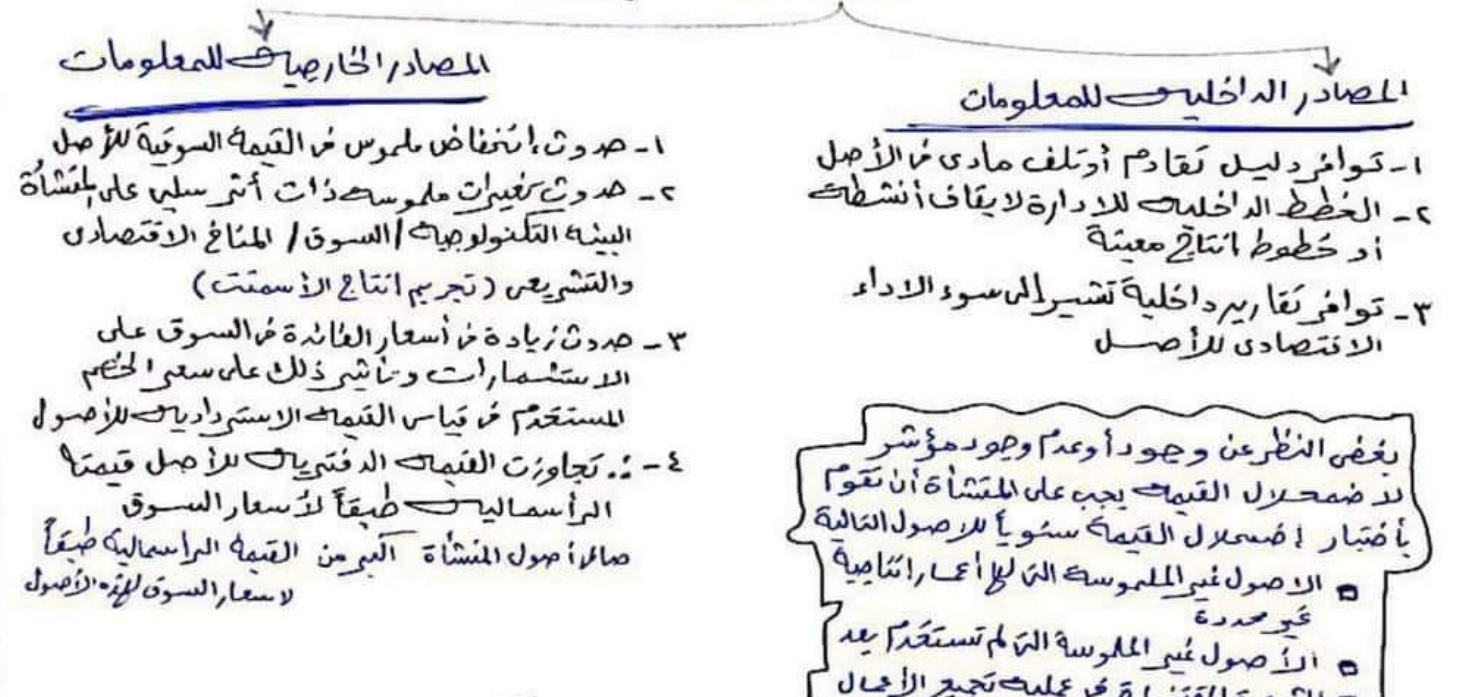 المصادر الداخلية للمعلومات
١- توافر دليل تقادم أو تلف مادى فى الأصل
٢- الخطط الداخلية للادارة لايقاف أنشطة
أو خطوط انتاج معينة
٣- توافر تقارير داخلية تشير إلى سوء الاداء
الاقتصادى للأصل
بغض النظر عن وجود أو عدم وجود مؤشر
لاضمحلال القيمة يجب على المنشأة أن تقوم
بأختبار إضمحلال القيمة سنوياً للاصول التالية
الاصول غير الملموسة التى لها أعمار انتاجية
غير محددة
الأصول غير الملموسة التى لم تستخدم بعد
فى عملية تجميع الأعمال
المصادر الخارجية للمعلومات
١- حدوث إنخفاض ملموس فى القيمة السوقية للأصل
٢- حدوث تغيرات ملموسة ذات أثر سلبى على المنشأة
البيئة التكنولوجية / السوق / المناخ الاقتصادى
والتشريعى (تجريم انتاج الأسمنت)
٣- حدوث زيادة فى أسعار الفائدة فى السوق على
الاستثمارات وتأثير ذلك على سعر الخصم
المستخدم فى قياس القيمة الاستردادية للأصول
٤- تجاوزت القيمة الدفترية للأصل قيمتها
الرأسمالية طبقاً لأسعار السوق
صافى أصول المنشأة أكبر من القيمة الرأسمالية طبقاً
لاسعار السوق لهذه الأصول